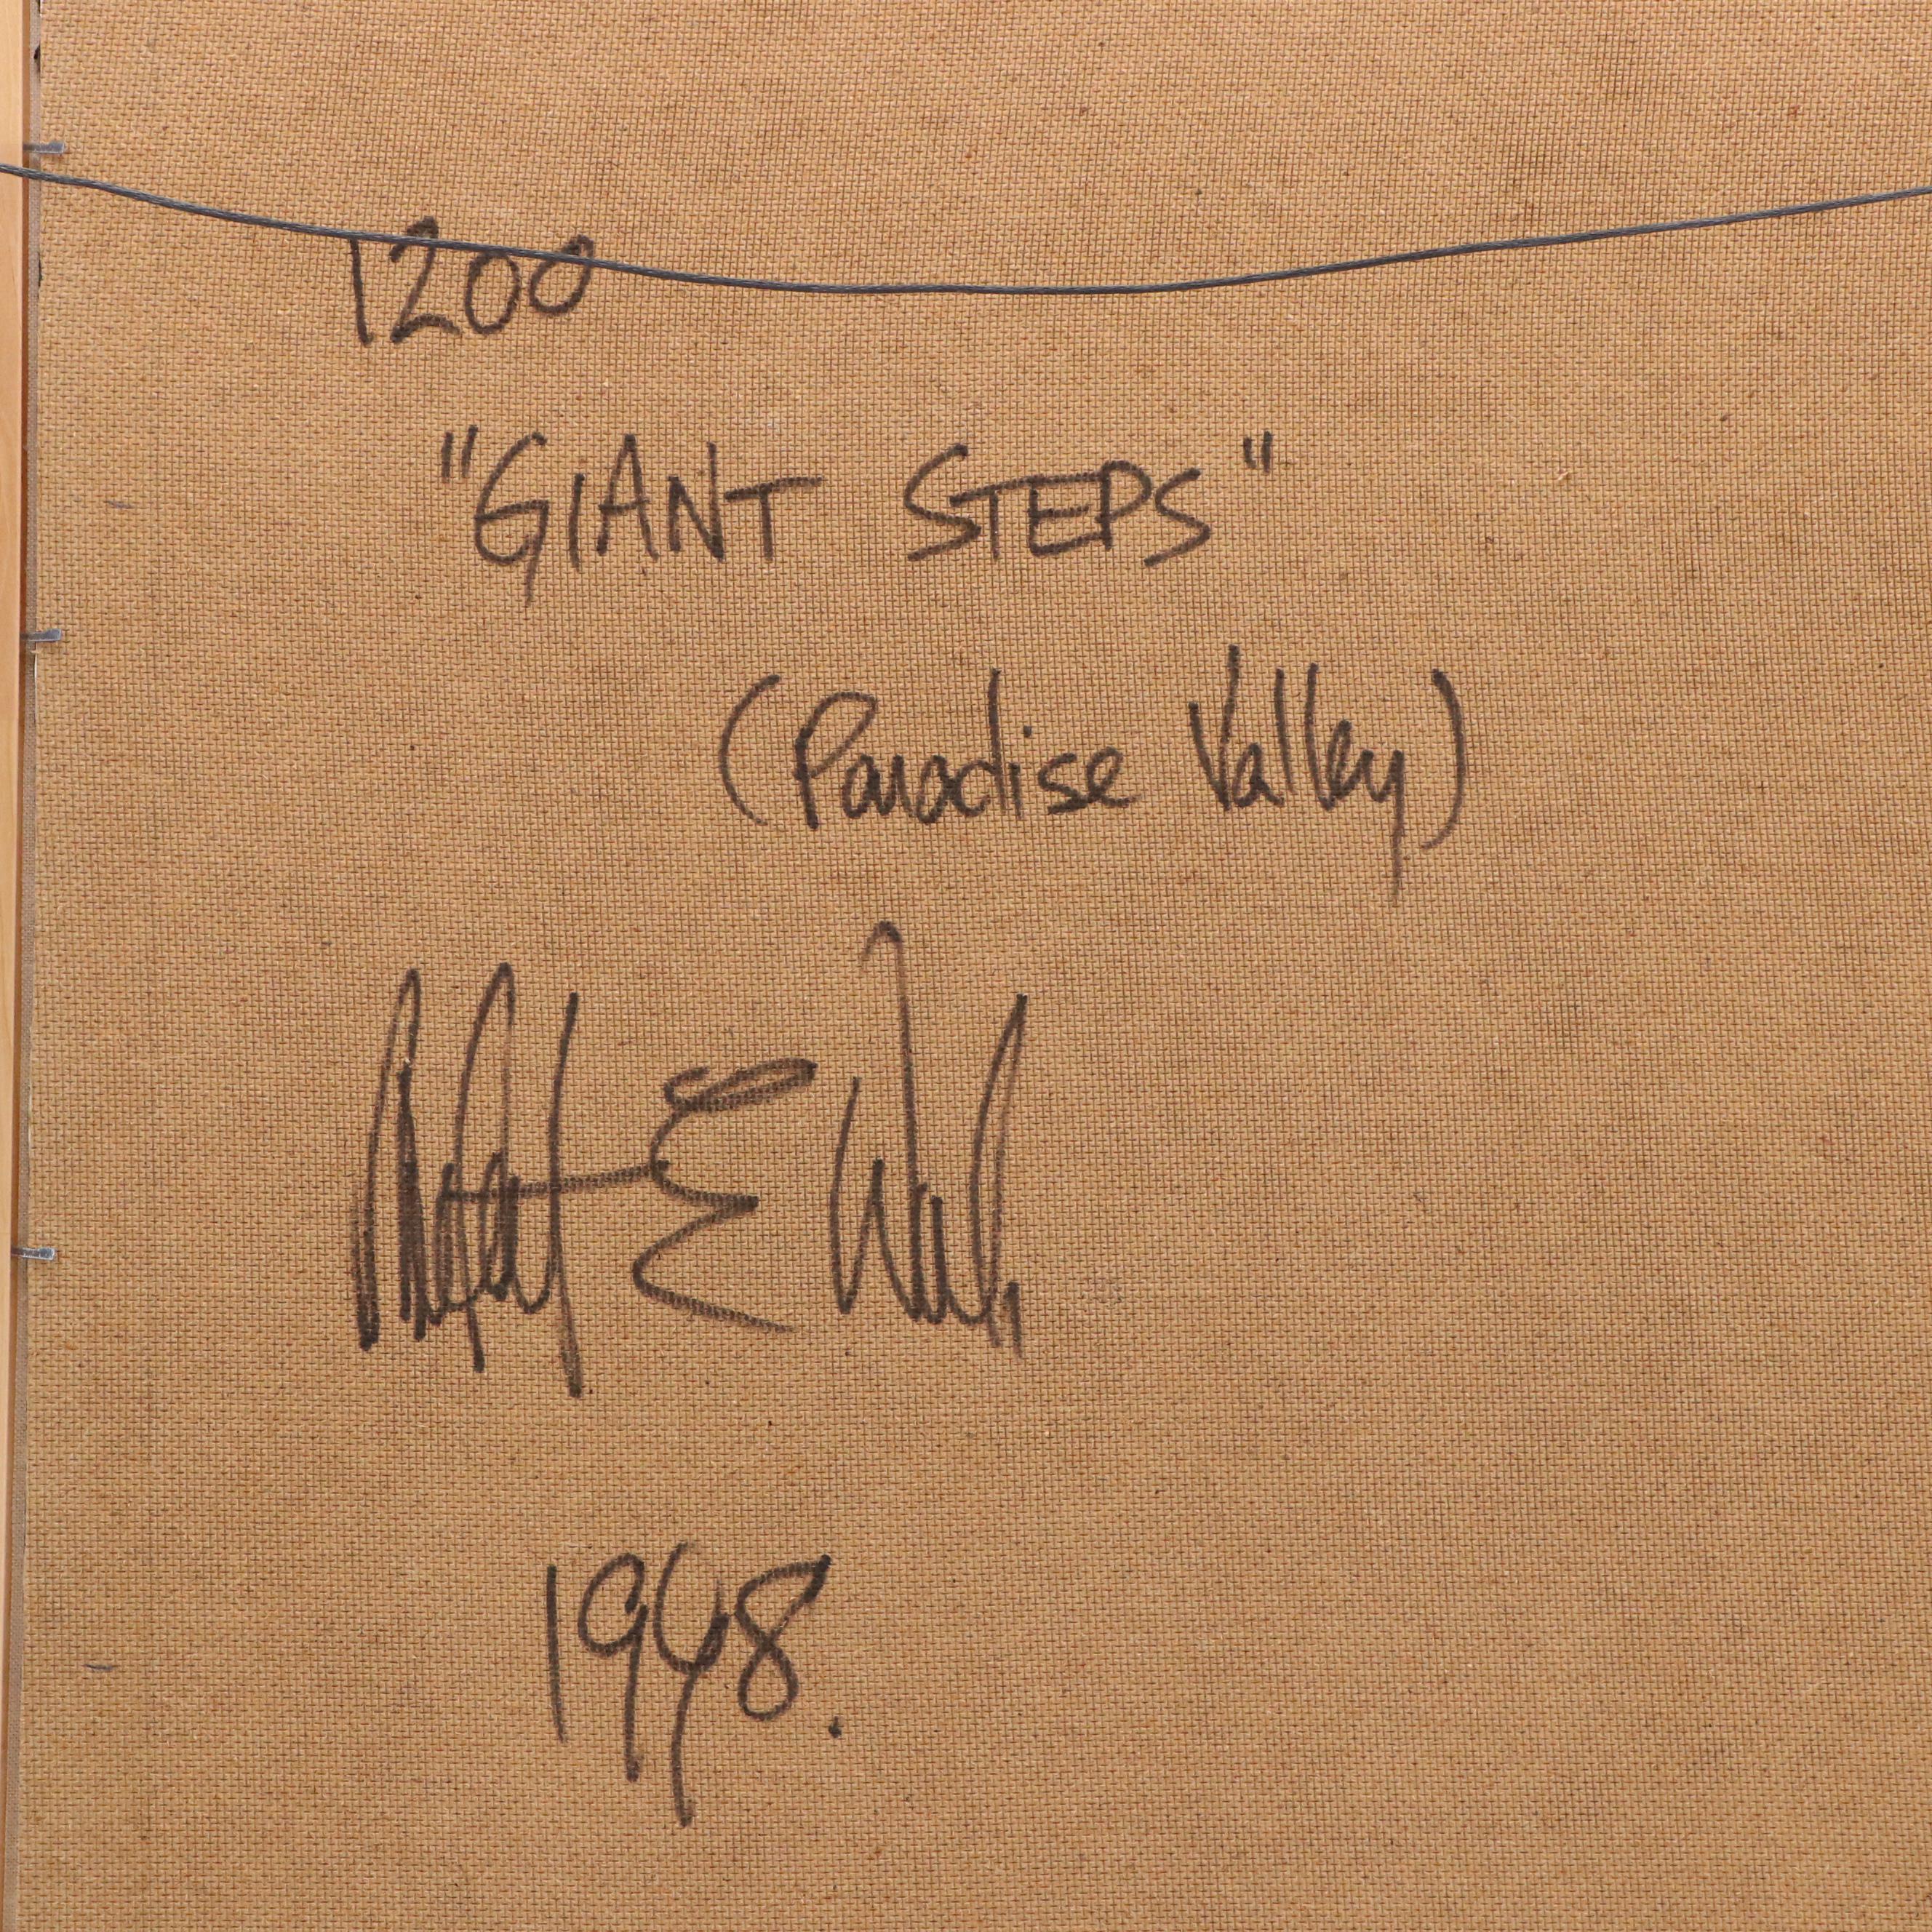 1200
"GIANT STEPS"
(Paradise Valley)
E
1998.